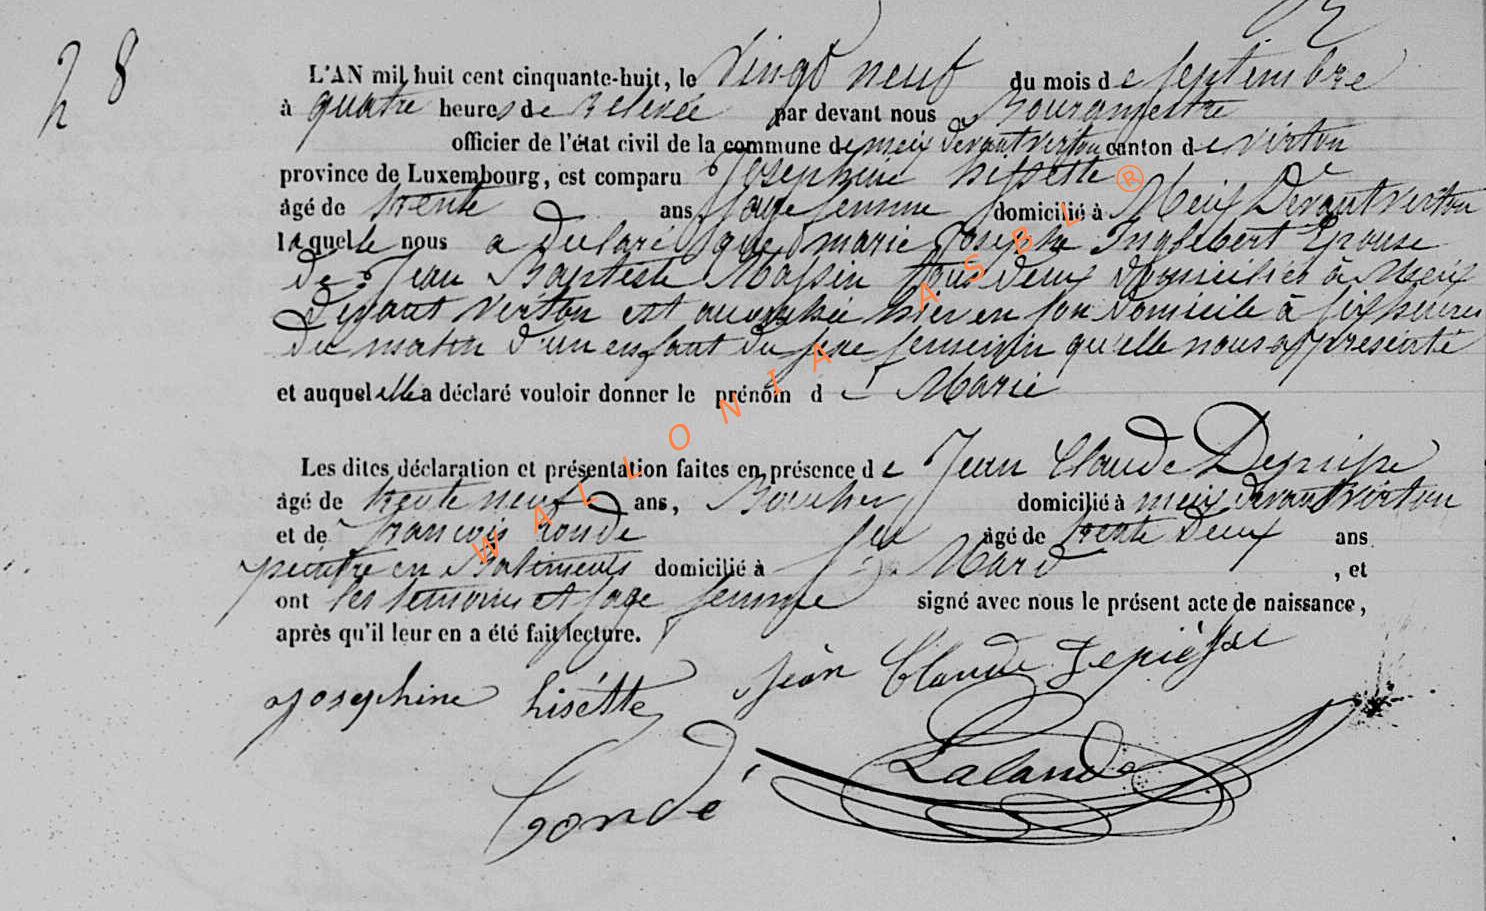 28
L'AN mil huit cent cinquante-huit, le Vingt neuf du mois de Septembre
à quatre heures de Relevée par devant nous Bourgmestre
officier de l'état civil de la commune de meix devant virton canton de virton
province de Luxembourg, est comparu Josephine hisette
âgé de trente ans, sage femme domicilié à Meix Devant virton
laquelle nous a declaré que marie Josephe Inglebert Epouse
de Jean Baptiste Massin tous deux domiciliés à Meix
Devant virton est accouchée hier en son domicile à six heures
du matin d'un enfant du sexe feminin qu'elle nous a presenté
et auquel elle a déclaré vouloir donner le prénom de Marie
Les dites déclaration et présentation faites en présence de Jean Claude
âgé de trente neuf ans, domicilié à meix devant virton
et de francois condé âgé de trente deux ans
peintre en Batiments domicilié à St Mard , et
ont les temoins et sage femme signé avec nous le présent acte de naissance,
après qu'il leur en a été fait lecture.
Josephine hisétte Jean Claude
Condé Lalande
WALLONIA ASBL ®